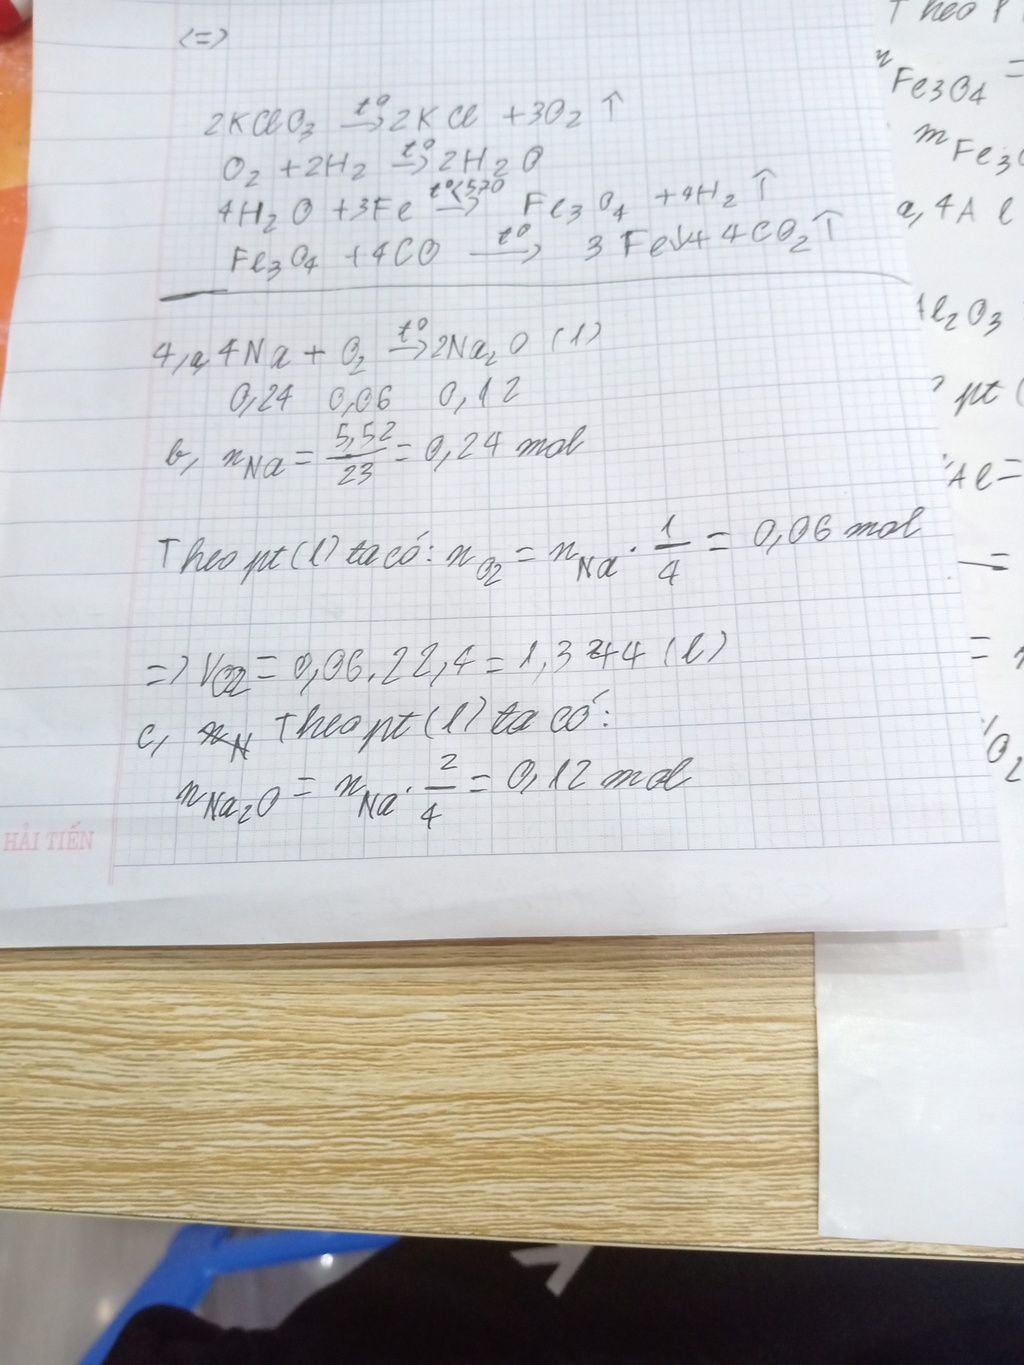 <=>
2KClO3 t°→ 2KCl + 3O2 ↑
O2 + 2H2 t°→ 2H2O
4H2O + 3Fe t°<570→ Fe3O4 + 4H2 ↑
Fe3O4 + 4CO t°→ 3Fe + 4CO2 ↑
4, a, 4Na + O2 t°→ 2Na2O (1)
0,24 0,06 0,12
b, nNa = 5,52/23 = 0,24 mol
Theo pt (1) ta có: nO2 = nNa . 1/4 = 0,06 mol
=> VO2 = 0,06 . 22,4 = 1,344 (l)
c, Theo pt (1) ta có:
nNa2O = nNa . 2/4 = 0,12 mol
HẢI TIẾN
Theo P
nFe3O4 =
mFe3O
a, 4Al
Al2O3
pt (
Al =
=
=
O2